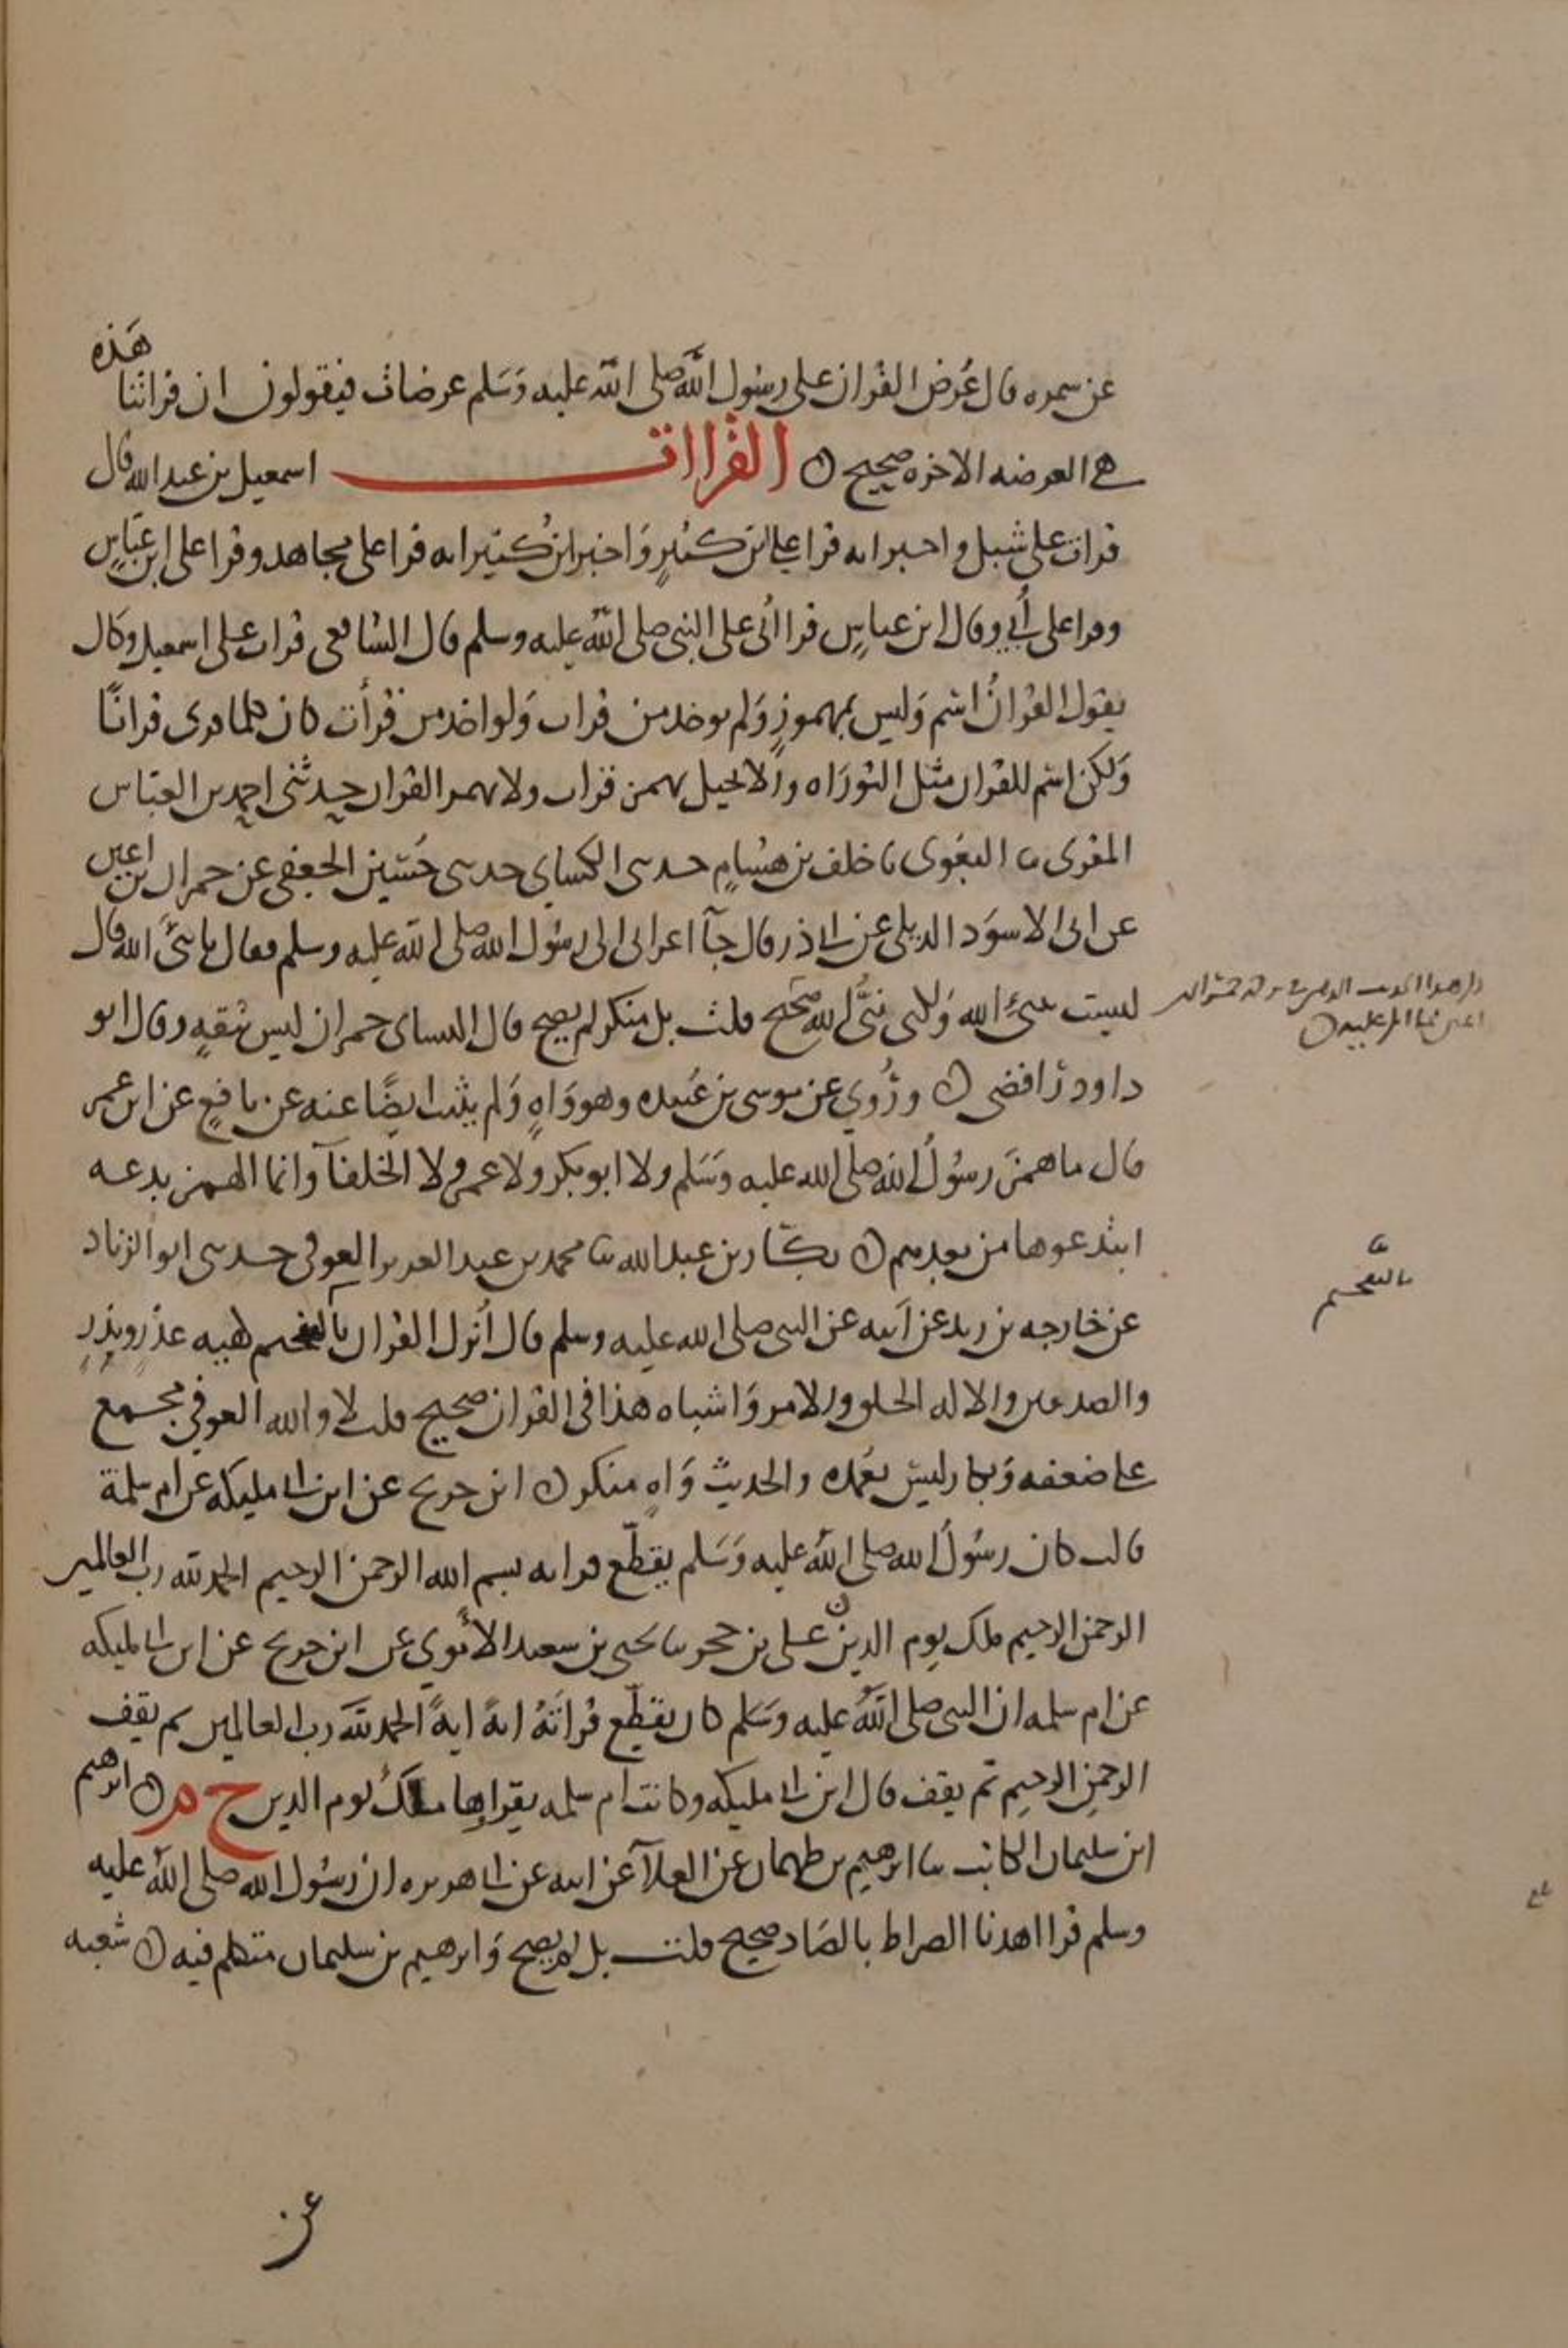 عن سمره قال عُرض القران على رسول الله صلى الله عليه وسلم عرضات فيقولون ان قراتنا هذه
هي العرضه الاخره صحيح ن القراات اسمعيل بن عبد الله قال
قرات على شبل واخبر انه قرا على ابن كثير واخبر ابن كثير انه قرا على مجاهد وقرا على ابن عباس
وقرا على أُبي وقال ابن عباس قرا اُبي على النبي صلى الله عليه وسلم قال الشافعي قرات على اسمعيل وكان
يقول القرانُ اسم وليس بمهموز ولم يوخذ من قرات ولو اخذ من قرأت كان كلما قرى قرانًا
ولكن اسم للقران مثل التوراه والانجيل يهمز قرات ولا يهمز القران حدثني احمد بن العباس
المقرى نا البغوى نا خلف بن هشام حدثني الكساي حدثني حُسين الجعفي عن حمران بن اعين
عن ابى الاسود الديلي عن ابي ذر قال جآ اعرابى الى رسول الله صلى الله عليه وسلم فقال يا نبيَ الله قال
لست بنبئ الله ولكنى نبيُّ الله صحيح قلت بل منكر لم يصح قال النساى حمران ليس بثقهٍ وقال ابو
داوود رافضي ن ورُوي عن موسى بن عُبيده وهو واهٍ ولم يثبت ايضًا عنه عن نافعٍ عن ابن عمر
قال ما همز رسولُ الله صلى الله عليه وسلم ولا ابو بكر ولا عمر ولا الخلفآ وانما الهمز بدعه
ابتدعوها من بعدهم ن بكّار بن عبد الله نا محمد بن عبد العزيز العوفي حدثني ابو الزناد
عن خارجه بن زيد عن ابيه عن النبي صلى الله عليه وسلم قال اُنزل القران بالتفخيم كهيه عذر ونذر
بالتفخيم
والصدفين والا له الخلق والامر واشباه هذا في القران صحيح قلت لا والله العوفي مجمع
على ضعفه وبكار ليس بعُمده والحديث واهٍ منكر ن ابن جريج عن ابن ابي مليكه عن ام سلمة
قالت كان رسولُ الله صلى الله عليه وسلم يقطّع قراته بسم الله الرحمن الرحيم الحمد لله رب العالمين
الرحمن الرحيم ملك يوم الدين ن على بن حجر نا يحيى بن سعيد الاُموي عن ابن جريج عن ابن ابي مليكه
عن ام سلمه ان النبي صلى الله عليه وسلم كان يقطّع قراتَهُ ايةً ايةً الحمد لله رب العالمين ثم يقف
الرحمن الرحيم ثم يقف قال ابن ابي مليكه وكانت ام سلمه يقراها ملك يوم الدين خ م ن ابرهيم
ابن سليمان الكاتب نا ابرهيم بن طهمان عن العلآ عن ابيه عن ابي هريره ان رسول الله صلى الله عليه
وسلم قرا اهدنا الصراط بالصاد صحيح قلت بل لم يصح وابرهيم بن سليمان متكلم فيه ن شعبه
عن